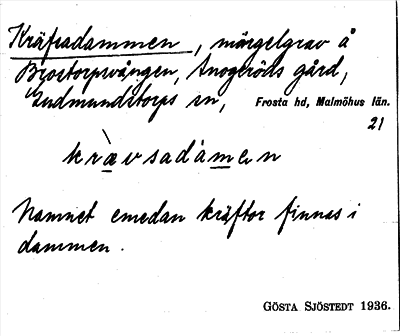 Kräfsadammen, märgelgrav å
Brostorpsvången, Anogeröds gård,
Gudmundstorps sn, Frosta hd, Malmöhus län.
21
krævsadàmen
Namnet emedan kräftor finnas i
dammen.
GÖSTA SJÖSTEDT 1936.